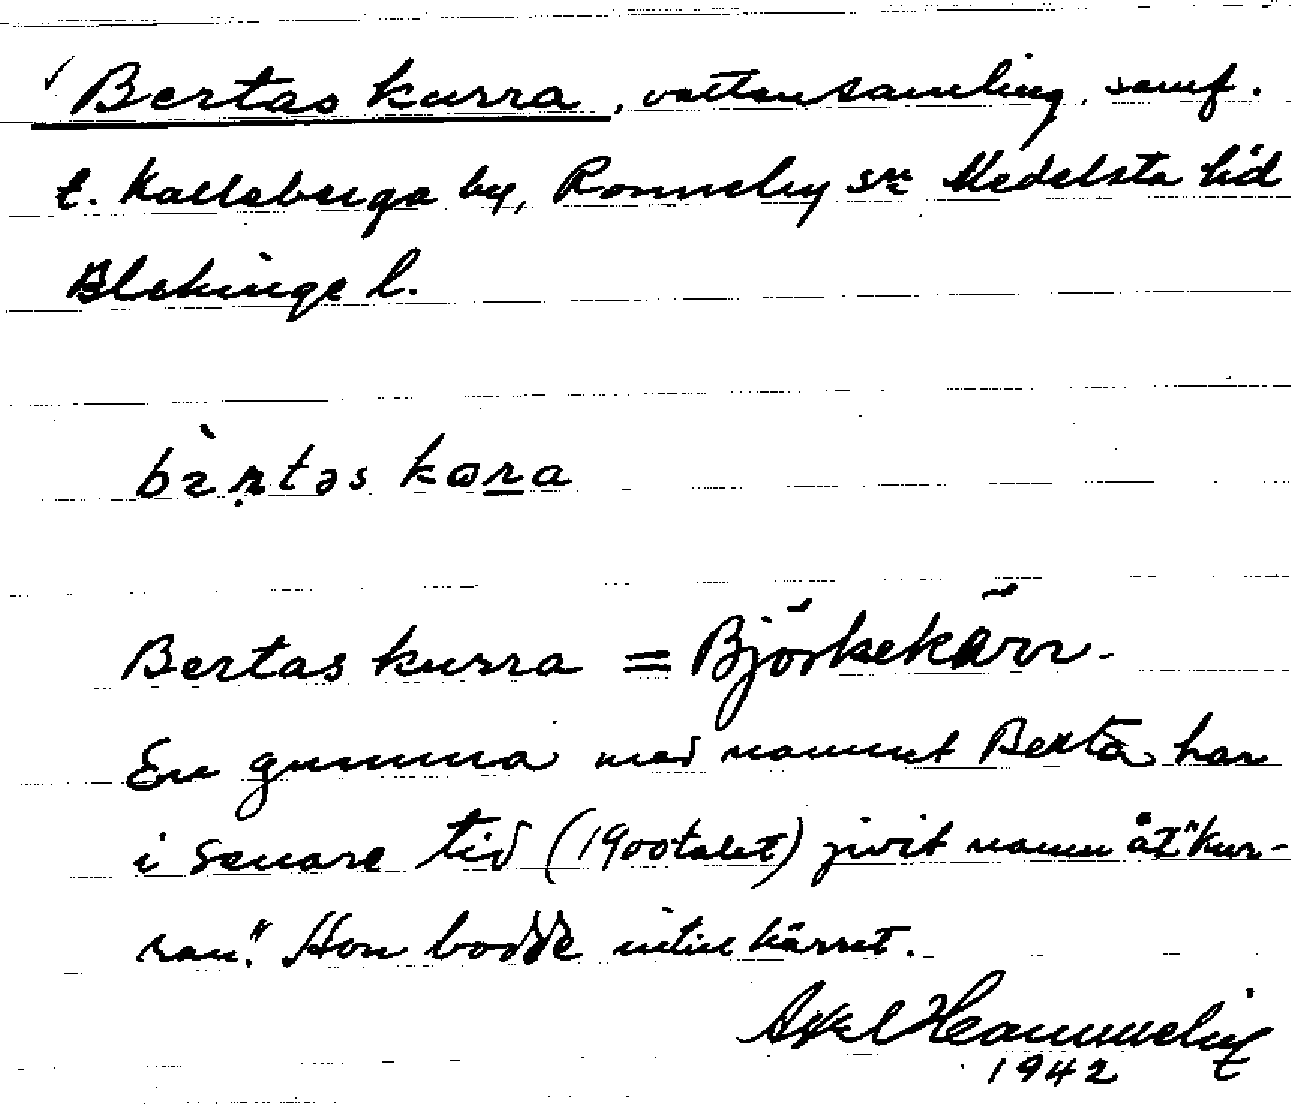 Bertas kurra, vattensamling, samf.
t. Kalleberga by, Ronneby sn Medelsta hd
Blekinge l.
bæ̀ṛtəs kɷra
Bertas kurra = Björkekärr.
En gumma med namnet Berta har
i senare tid (1900talet) givit namn åt "kur-
ran". Hon bodde intill kärret.
Axel
1942